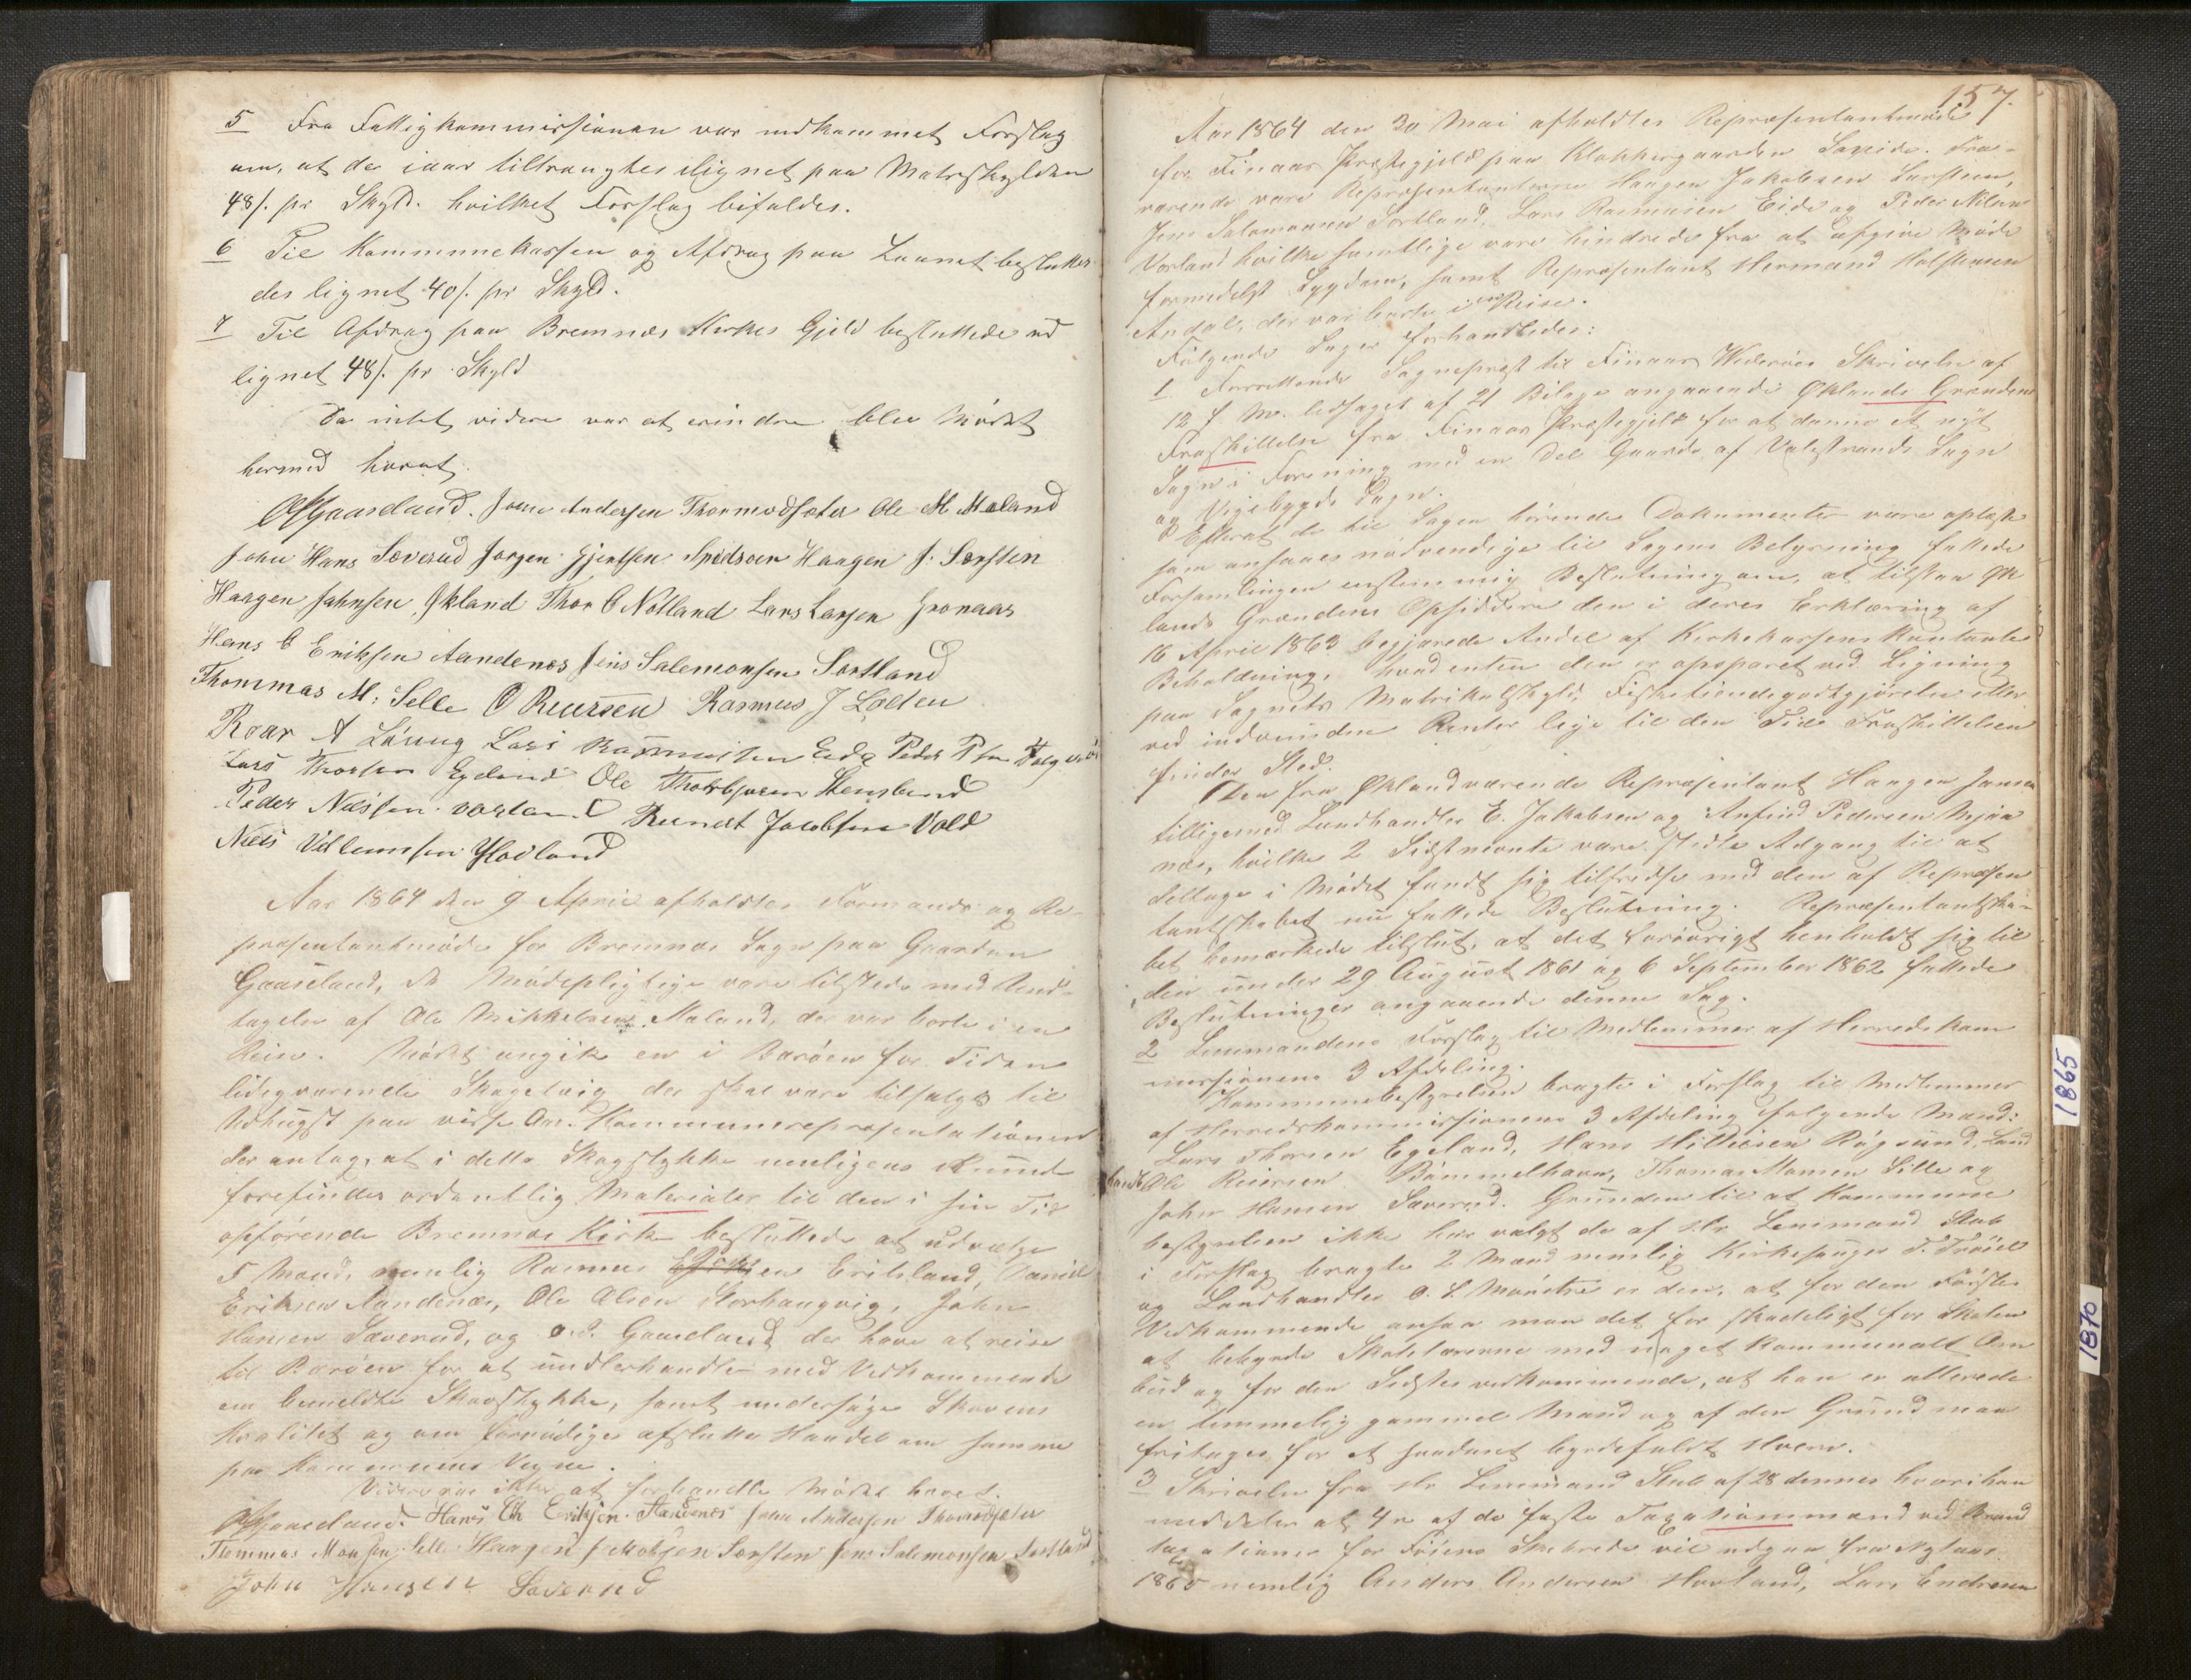 5 Fra Fattigkommissionen var indkommet Forslag
om, at der iaar tiltrængtes lignet paa Matrskylden
48/. pr Skyld. hvilket Forslag bifaldes.
6 Til Kommunekassen og Afdrag paa Laanet beslutte-
des lignet 40/. pr Skyld.
7 Til Afdrag paa Bremnæs Kirkes Gjeld besluttede ud
lignet 48/. pr Skyld
Da intet videre var at erindre blev Mødet
hermed hævet.
Gaaseland. Jonn Andersen Thormodsæter Ole M Maland
John Hans Søverud Jørgen Gjertsen Spidsøen Haagen J. Sørsten
Haagen Jahnsen Økland Thor O Nolland Lars Larsen Gronaas
Hans C Eriksen Aandenes Jens Salemonsen Sortland
Thommas M: Selle O Reiersen Rasmus J Lolten
Roar A Løning Lars Rasmussen Eide Peder P
Lars Thorsen Egeland Ole Thorbjørnsen
Peder Nilssen Vorland Berndt Jacobsen Vold
Niels Villumsen Hovland
Aar 1864 den 9 April afholdtes Formands og Re-
præsentantmøde for Bremnæs Sogn paa Gaarden
Gaaseland, de Mødepligtige vare tilstede med Und-
tagelse af Ole Mikkelsen Maland, der var borte i en
Reise. Mødet angik en i Barøen for Tiden
der skal være tilsalgs til
Udhugst paa visse Aar. Kommunerepræsentationen
der antog, at i dette Skogstykke muligens kunde
forefindes ordentlig Materialer til den i sin Tid
opførende Bremnæs Kirke besluttede at udvælge
5 Mænd, nemlig Rasmus Eritsland, Daniel
Eriksen Aandenæs, Ole Olsen Storhaugvig, John
Hansen Søverud, og O.S. Gaaseland der have at reise
til Barøen for at underhandle med Vedkommende
om bemeldte Skovstykke, samt undersøge Skovens
Kvalitet og om fornødiges afslutte Handel om samme
paa Kommunens Vegne.
Videre var ikke at forhandle Mødet hævet.
Gaaseland. Hans Chr Eriksen Aandenes Jonn Andersen Thormodsæter
Tommas Monsen Selle Haagen Jakobsen Sørsten Jens Salemonsen Sortland
John Hansen Søverud
157.
Aar 1864 den 30 Mai afholdtes Repræsentantmøde
for Finaas Præstegjeld paa Klokkergaarden Fra-
værende vare Repræsentanterne Haagen Jakobsen Sørsteen,
Jens Salamonsen Sortland, Lars Rasmusen Eide og Peder Nilsen
Vorland hvilke samtlige vare hindrede fra at afgive Møde
formedelst Sygdom, samt Repræsentant Hermand Halstensen
Andal, der var borte i en Reise.
Følgende Sager forhandledes:
1 Forrettende Sognepræst til Finaas Skrivelse af
12 f. M. ledsaget af 21 Bilage angaaende Øklands Grændens
Fraskillelse fra Finaas Præstegjeld for at danne et nyt
Sogn i Forening med en Del Gaarde af Valestrands Sogn
og Vigebygds Sogn.
Efterat de til Sagen hørende Dokumenter vare oplæste
som ansaaes nødvendige til Sagens Belysning fattede
Forsamlingen enstemmig Beslutning om, at tilstaa Øk
lands Grændens Opsiddere den i deres Erklæring af
16 April 1863 begjærede Andel af Kirkekassens kontante
Beholdning, hvad enten den er opsparet ved Ligning
paa Sognets Matrikulskyld, Fisketiendegodtgjørelse eller
ved indvundne Renter lige til den Tid Fraskillelsen
finder Sted.
Den fra Økland værende Repræsentant Haagen Jansen
tilligemed Landhandler E. Jakobsen og Anfind Pedersen Mjaa
næs, hvilke 2 Sidstnævnte vare stedte Adgang til at
deltage i Mødet fandt sig tilfredse med den af Repræsen
tantskabet nu fattede Beslutning. Repræsentantska-
bet bemærkede tilslut, at det forøvrigt henholdt sig til
den under 29 August 1861 og 6 September 1862 fattede
Beslutninger angaaende denne Sag.
2 Lensmandens Forslag til Medlemmer af Herredskom
missionens 3 Afdeling.
Kommunebestyrelsen bragte i Forslag til Medlemmer
af Herredskommissionens 3 Afdeling følgende Mænd:
Lars Thorsen Egeland, Hans Rögsund, Land
handl. Ole Reiersen Bömmelhavn, Thomas Monsen Selle og
John Hansen Søverud. Grunden til at Kommune
bestyrelsen ikke har valgt de af Hr. Lensmand Stub
i Forslag bragte 2 Mænd nemlig Kirkesanger T. Trøiel
og Landhandler O. L. er den, at for den Førstes
Vedkommende ansaa man det for skadeligt for Skolen
at bebyrde Skolelærerne med noget kommunalt Om
bud og for den Sidstes vedkommende, at han er allerede
en temmelig gammel Mand og af den Grund maa
fritages for et saadant byrdefuldt Hverv.
3 Skrivelse fra Hr. Lensmand Stub af 28 dennes hvori han
meddeler at 4re af de faste Taxationsmænd ved Brand
taxationer for Føiens Skibrede vil udgaa fra Nytaar
1865 nemlig Anders Andersen Hovland, Lars Endresen
1865
1870